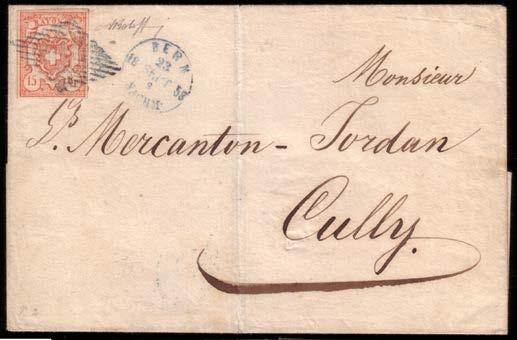 RAYON
15
BERN
23
18 SEPT 53
NACHM
Monsieur
Ls. Mercanton - Jordan
Cully.